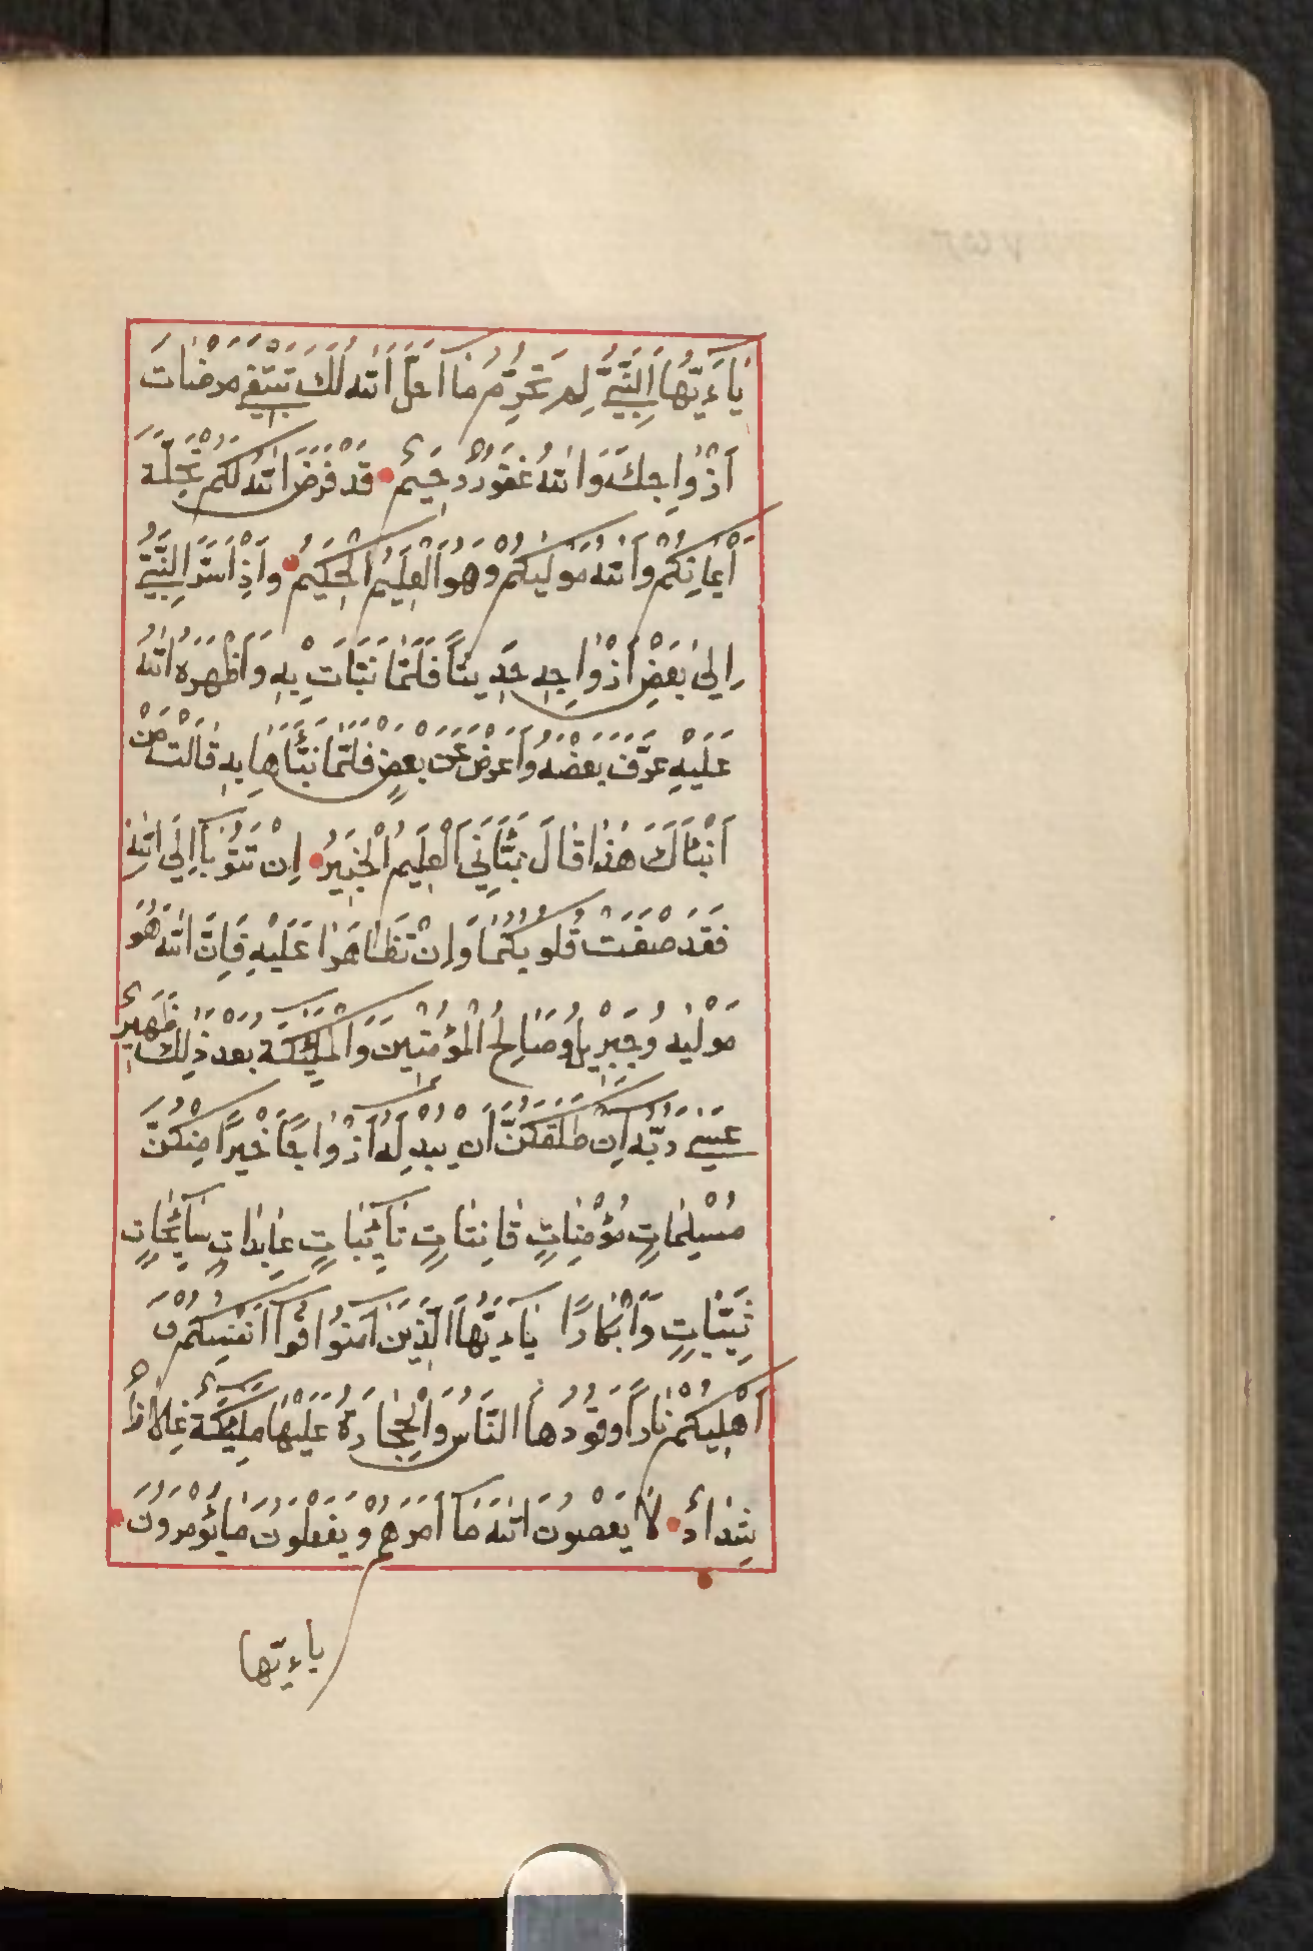 يَاءَيُّهَا النَّبِيُّ لِمَ تُحَرِّمُ مَا اَحَلَّ اللّٰهُ لَكَ تَبْتَغِي مَرْضَاتَ
اَزْوَاجِكَ وَاللّٰهُ غَفُورٌ رَحِيمٌ قَدْ فَرَضَ اللّٰهُ لَكُمْ تَحِلَّةَ
اَيْمَانِكُمْ وَاللّٰهُ مَوْلٰيكُمْ وَهُوَ الْعَلِيمُ الْحَكِيمُ وَاِذْ اَسَرَّ النَّبِيُّ
اِلىٰ بَعْضِ اَزْوَاجِهِ حَدِيثاً فَلَمَّا نَبَّاَتْ بِهِ وَاَظْهَرَهُ اللّٰهُ
عَلَيْهِ عَرَّفَ بَعْضَهُ وَاَعْرَضَ عَنْ بَعْضٍ فَلَمَّا نَبَّأَهَا بِهِ قَالَتْ مَنْ
اَنْبَأَكَ هٰذَا قَالَ نَبَّاَنِيَ الْعَلِيمُ الْخَبِيرُ اِنْ تَتُوبَآ اِلَى اللّٰهِ
فَقَدْ صَغَتْ قُلُوبُكُمَا وَاِنْ تَظَاهَرَا عَلَيْهِ فَاِنَّ اللّٰهَ هُوَ
مَوْلٰيهُ وَجِبْرِيلُ وَصَالِحُ الْمُؤْمِنِينَ وَالْمَلٰئِكَةُ بَعْدَ ذٰلِكَ ظَهِيرٌ
عَسىٰ رَبُّهُ اِنْ طَلَّقَكُنَّ اَنْ يُبْدِلَهُ اَزْوَاجًا خَيْرًا مِنْكُنَّ
مُسْلِمَاتٍ مُؤْمِنَاتٍ قَانِتَاتٍ تَآئِبَاتٍ عَابِدَاتٍ سَآئِحَاتٍ
ثَيِّبَاتٍ وَّاَبْكَارًا يَاءَيُّهَا الَّذِينَ اٰمَنُوا قُوآ اَنْفُسَكُمْ وَ
اَهْلِيكُمْ نَارًا وَقُودُهَا النَّاسُ وَالْحِجَارَةُ عَلَيْهَا مَلٰئِكَةٌ غِلَاظٌ
شِدَادٌ لَا يَعْصُونَ اللّٰهَ مَآ اَمَرَهُمْ وَيَفْعَلُونَ مَا يُؤْمَرُونَ
ياءيّها